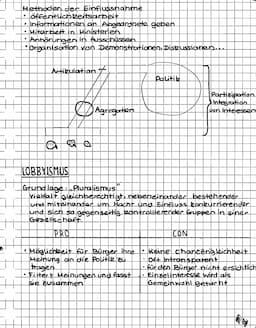 Methoden der Einflussnahme
• Öffentlichkeitsarbeit
• Informationen an Abgeordnete geben
• Mitarbeit in Ministerien
• Anhörungen in Ausschüssen
• Organisation von Demonstrationen, Diskussionen...
Artikulation
Politik
Aggregation
Partizipation
Integration
von Interessen
LOBBYISMUS
Grundlage: "Pluralismus"
Vielfalt gleichberechtigt nebeneinander bestehender
und miteinander um Macht und Einfluss konkurrierender
und sich so gegenseitig kontrollierender Gruppen in einer
Gesellschaft
PRO
CON
• Möglichkeit für Bürger ihre
Meinung an die Politik zu
tragen
• Filtert Meinungen und fasst
sie zusammen
• Keine Chancengleichheit
• Oft intransparent
• für den Bürger nicht ersichtlich
• Einzelinteresse wird als
Gemeinwohl getarnt